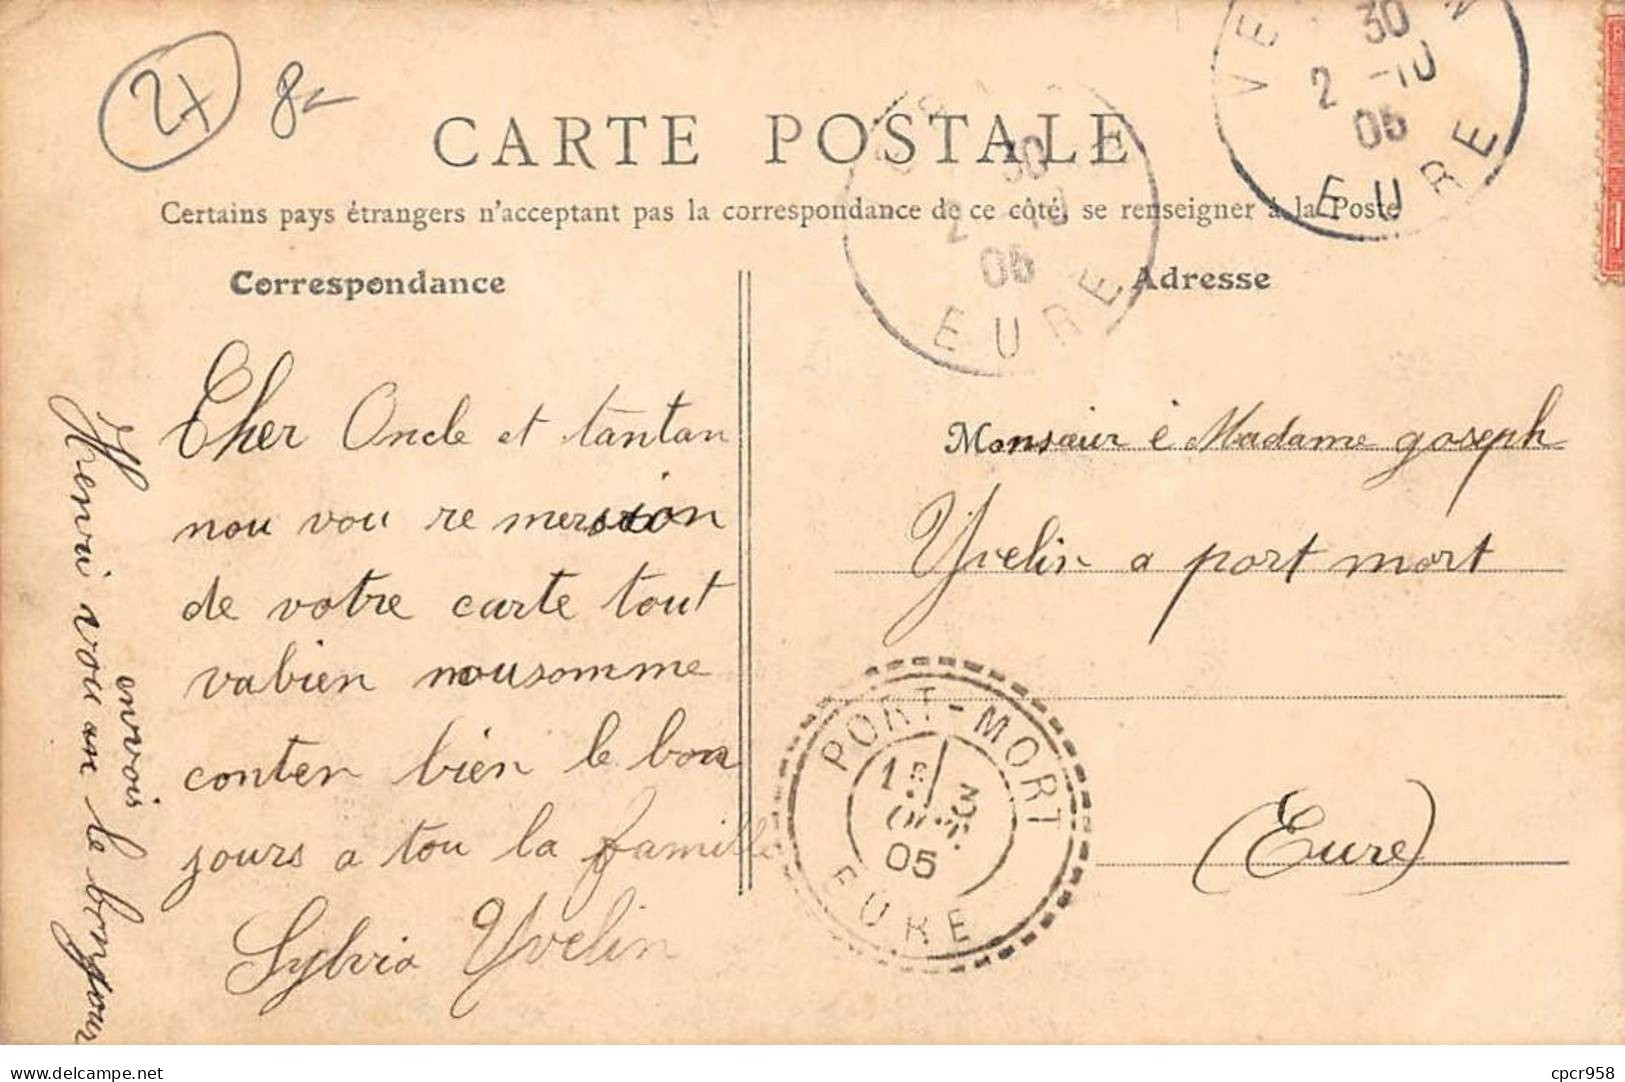 27
8-
CARTE POSTALE
Certains pays étrangers n'acceptant pas la correspondance de ce côté, se renseigner à la Poste
Correspondance
Adresse
30
2 -10
05
EURE
30
2 -10
05
EURE
Cher Oncle et tantan
nou vou re mersion
de votre carte tout
vabien nousomme
conten bien le bon
jours a tou la famille
Sylvia Yvelin
Henri vou an le bonjour
envois
Monsaiur é Madame goseph
Yvelin a port mort
(Eure)
PORT-MORT
OCT.
05
EURE
delcampe.net
cpcr958